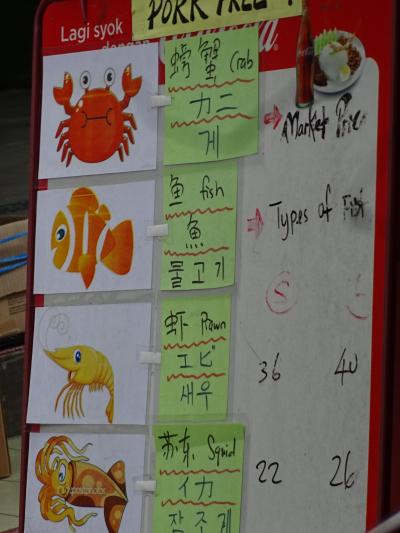 PORK FREE !
Lagi syok
dengan
螃蟹 Crab
カニ
게
Market Price
鱼 fish
魚
물고기
Types of Fish
S
虾 Prawn
エビ
새우
36 40
苏东 Squid
イカ
22 26